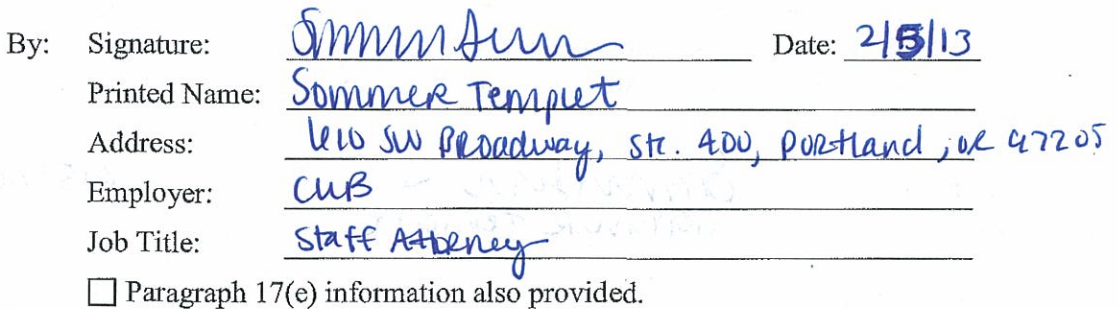 By: Signature: Date: 2/5/13
Printed Name: Sommer Templet
Address: 610 SW Broadway, Ste. 400, Portland, OR 97205
Employer: CUB
Job Title: Staff Attorney
☐ Paragraph 17(e) information also provided.